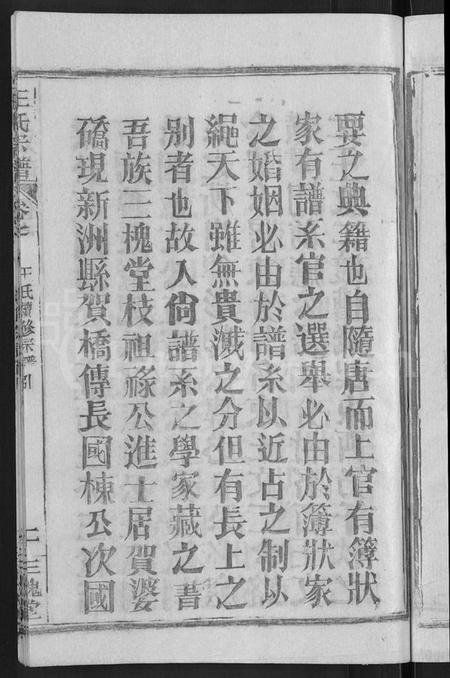 要之典籍也自隨唐而上官有簿狀
家有譜系官之選舉必由於簿狀家
之婚姻必由於譜系以近占之制以
繩天下雖無貴溅之分但有長上之
别者也故人尙譜系之學家藏之書
吾族三槐堂枝祖祿公進士居賀婆
僑現新洲縣賀橋傳長國棟公次國
王氏宗譜 卷七 王氏續修宗譜引 十 三槐堂